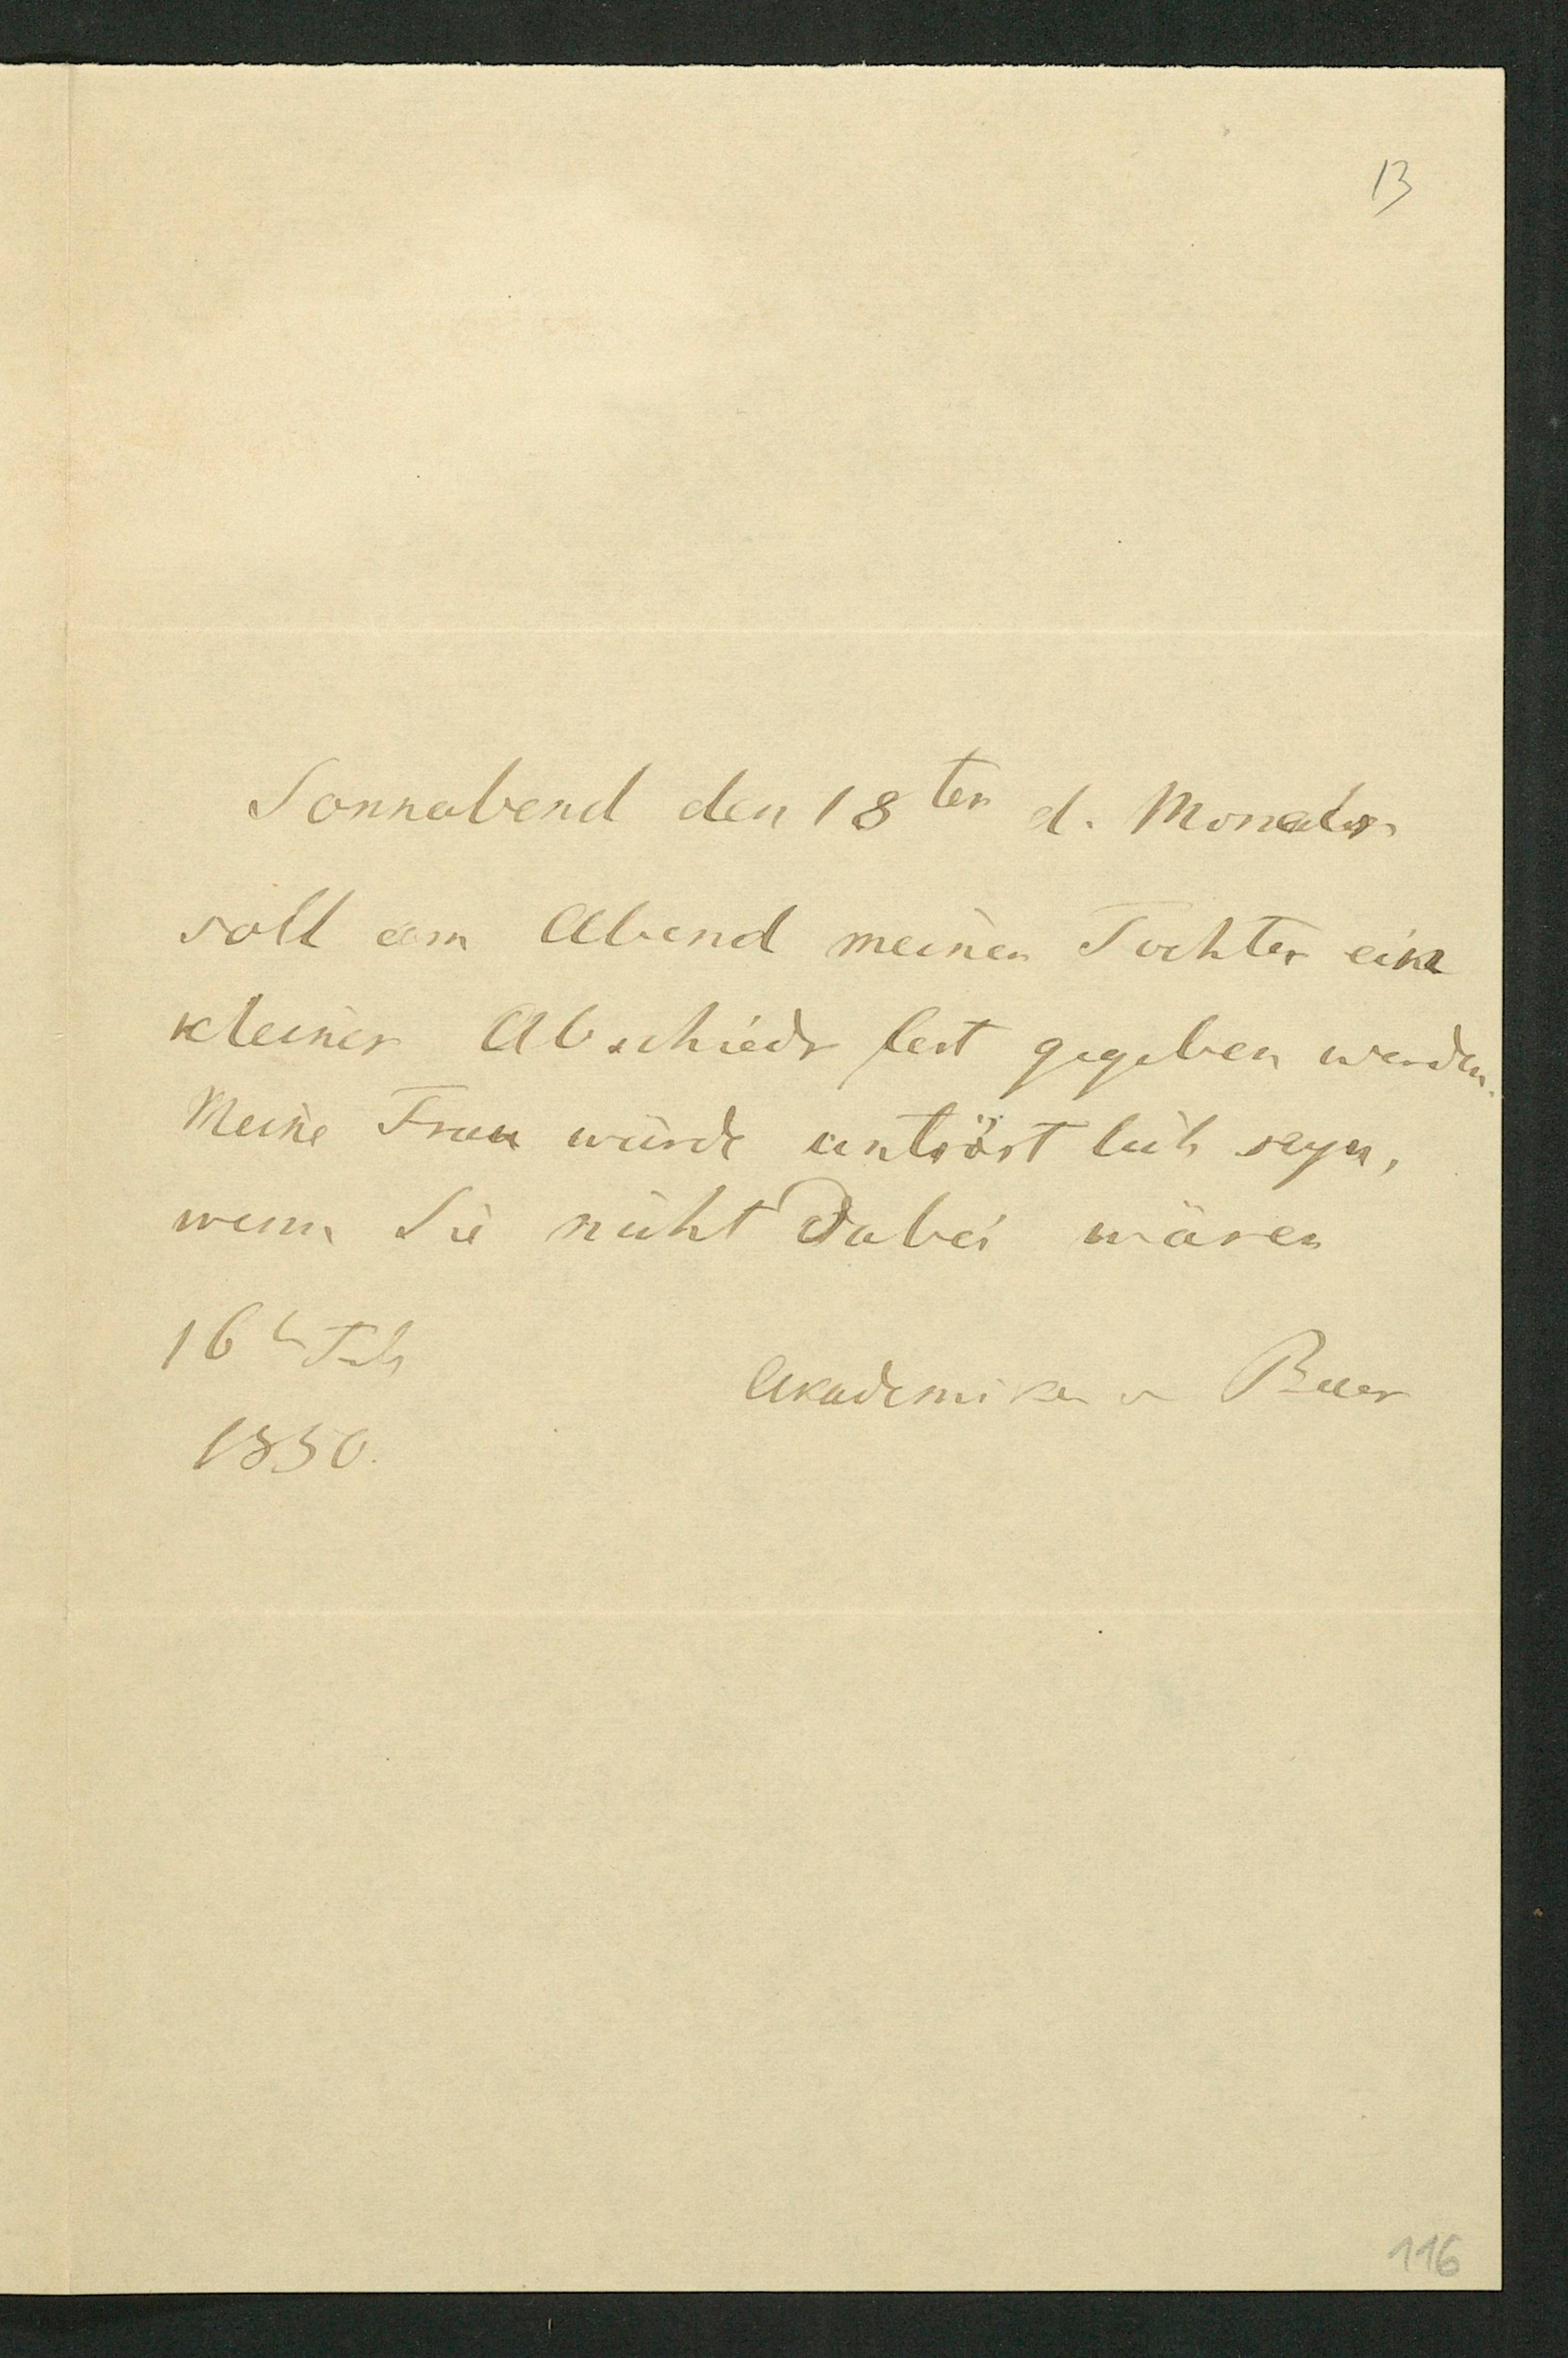 13
Sonnabend den 18ten d. Monats
soll am Abend meiner Tochter ein
kleines Abschieds fest gegeben werden.
Meine Frau würde untröst lich seyn,
wenn Sie nicht dabei wären
16
Akademiker v Baer
1850.
116